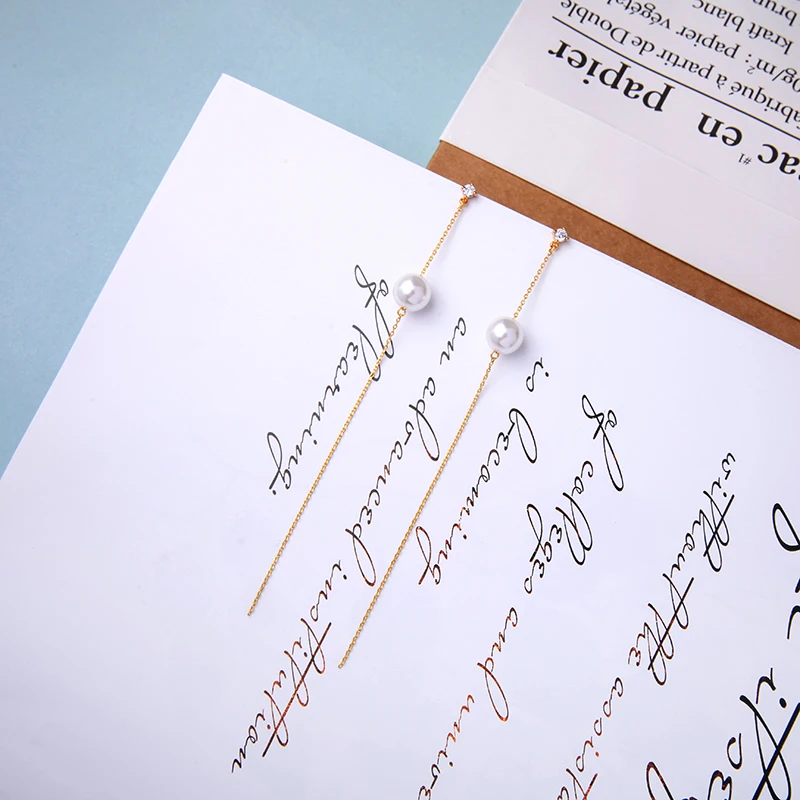 #1
ac en papier
abriqué à partir de Double
0g/m² : papier végétal
kraft blanc
brun
without the assista
of colleges and unive
is becoming
an advanced institution
of learning.